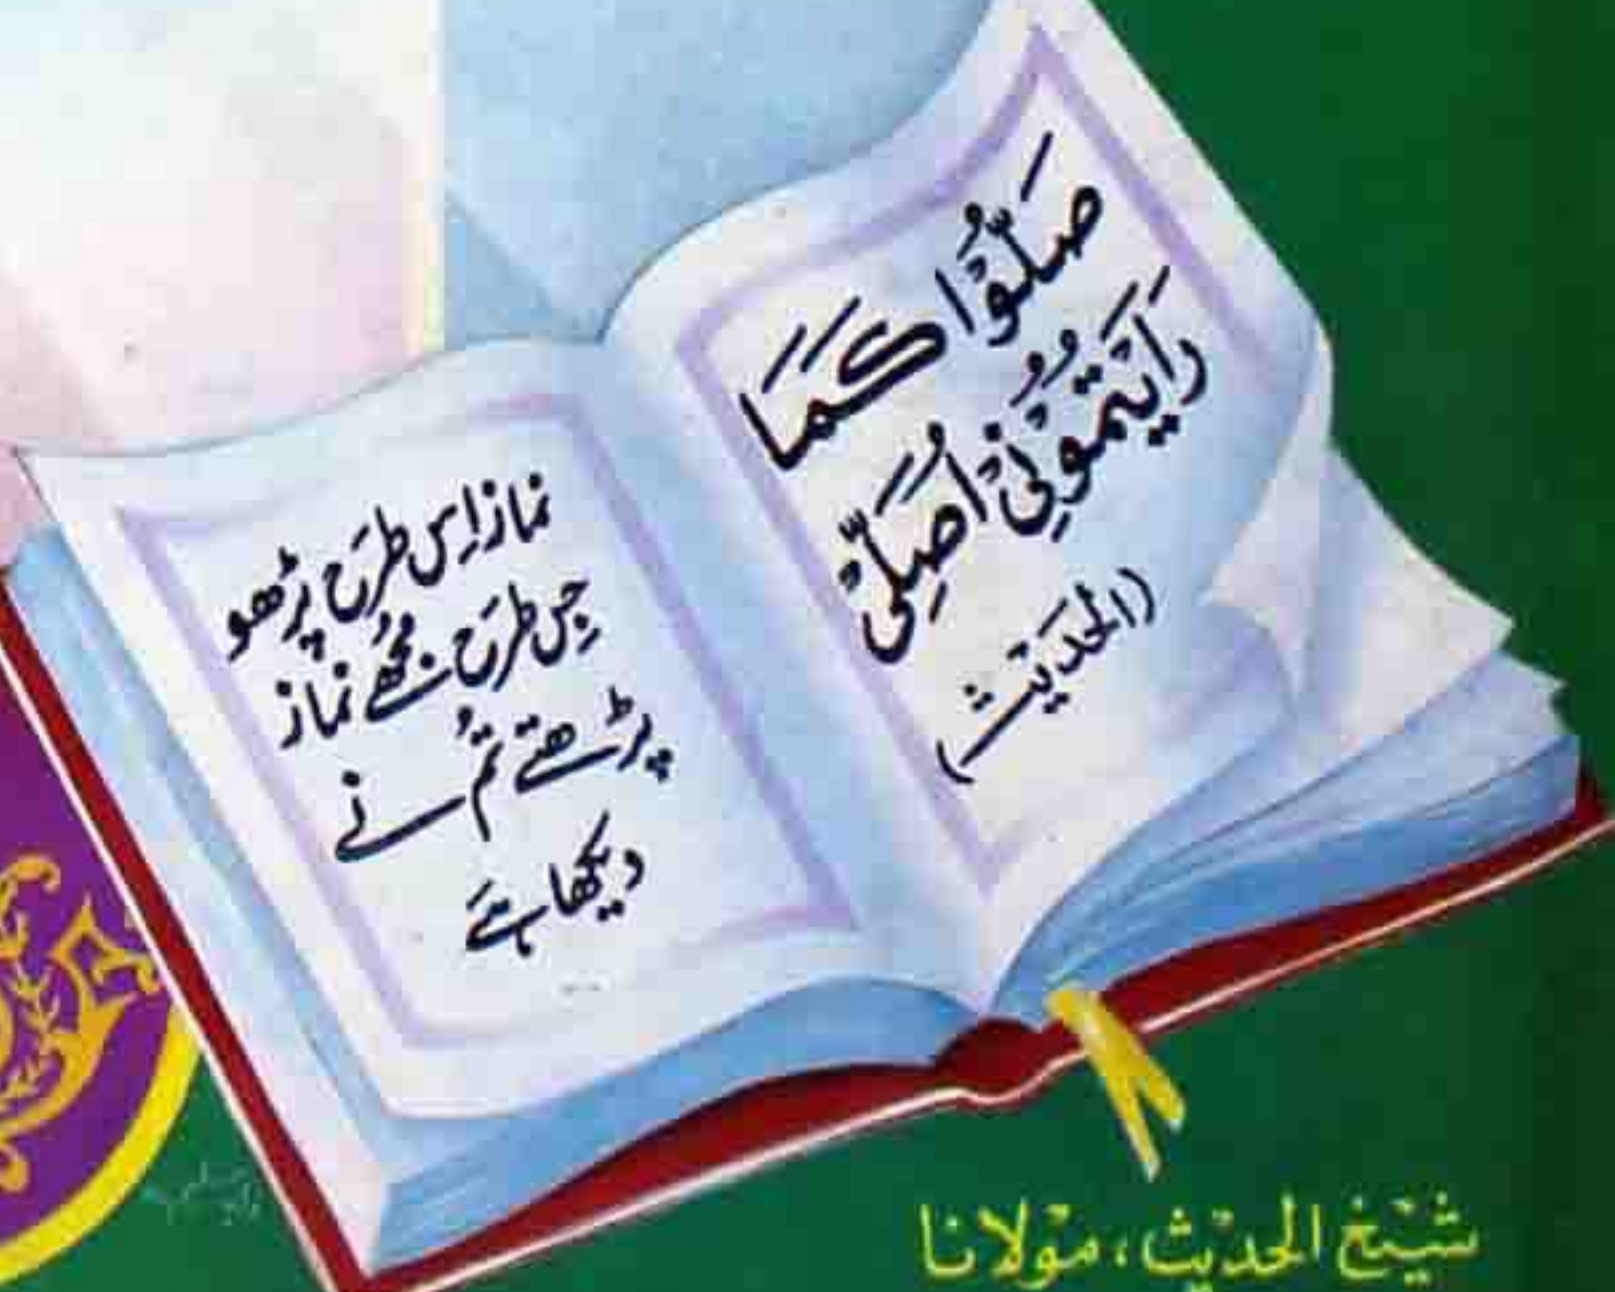 صَلُّوْا كَمَا
رَاَيْتُمُوْنِیْ اُصَلِّیْ
(الحدَیث)
نماز اِس طرَح پڑھو
جِس طرَح مُجھے نماز
پڑھتے تُم نے
دیکھا ہَے
شیْخ الحدیْث، موْلانا